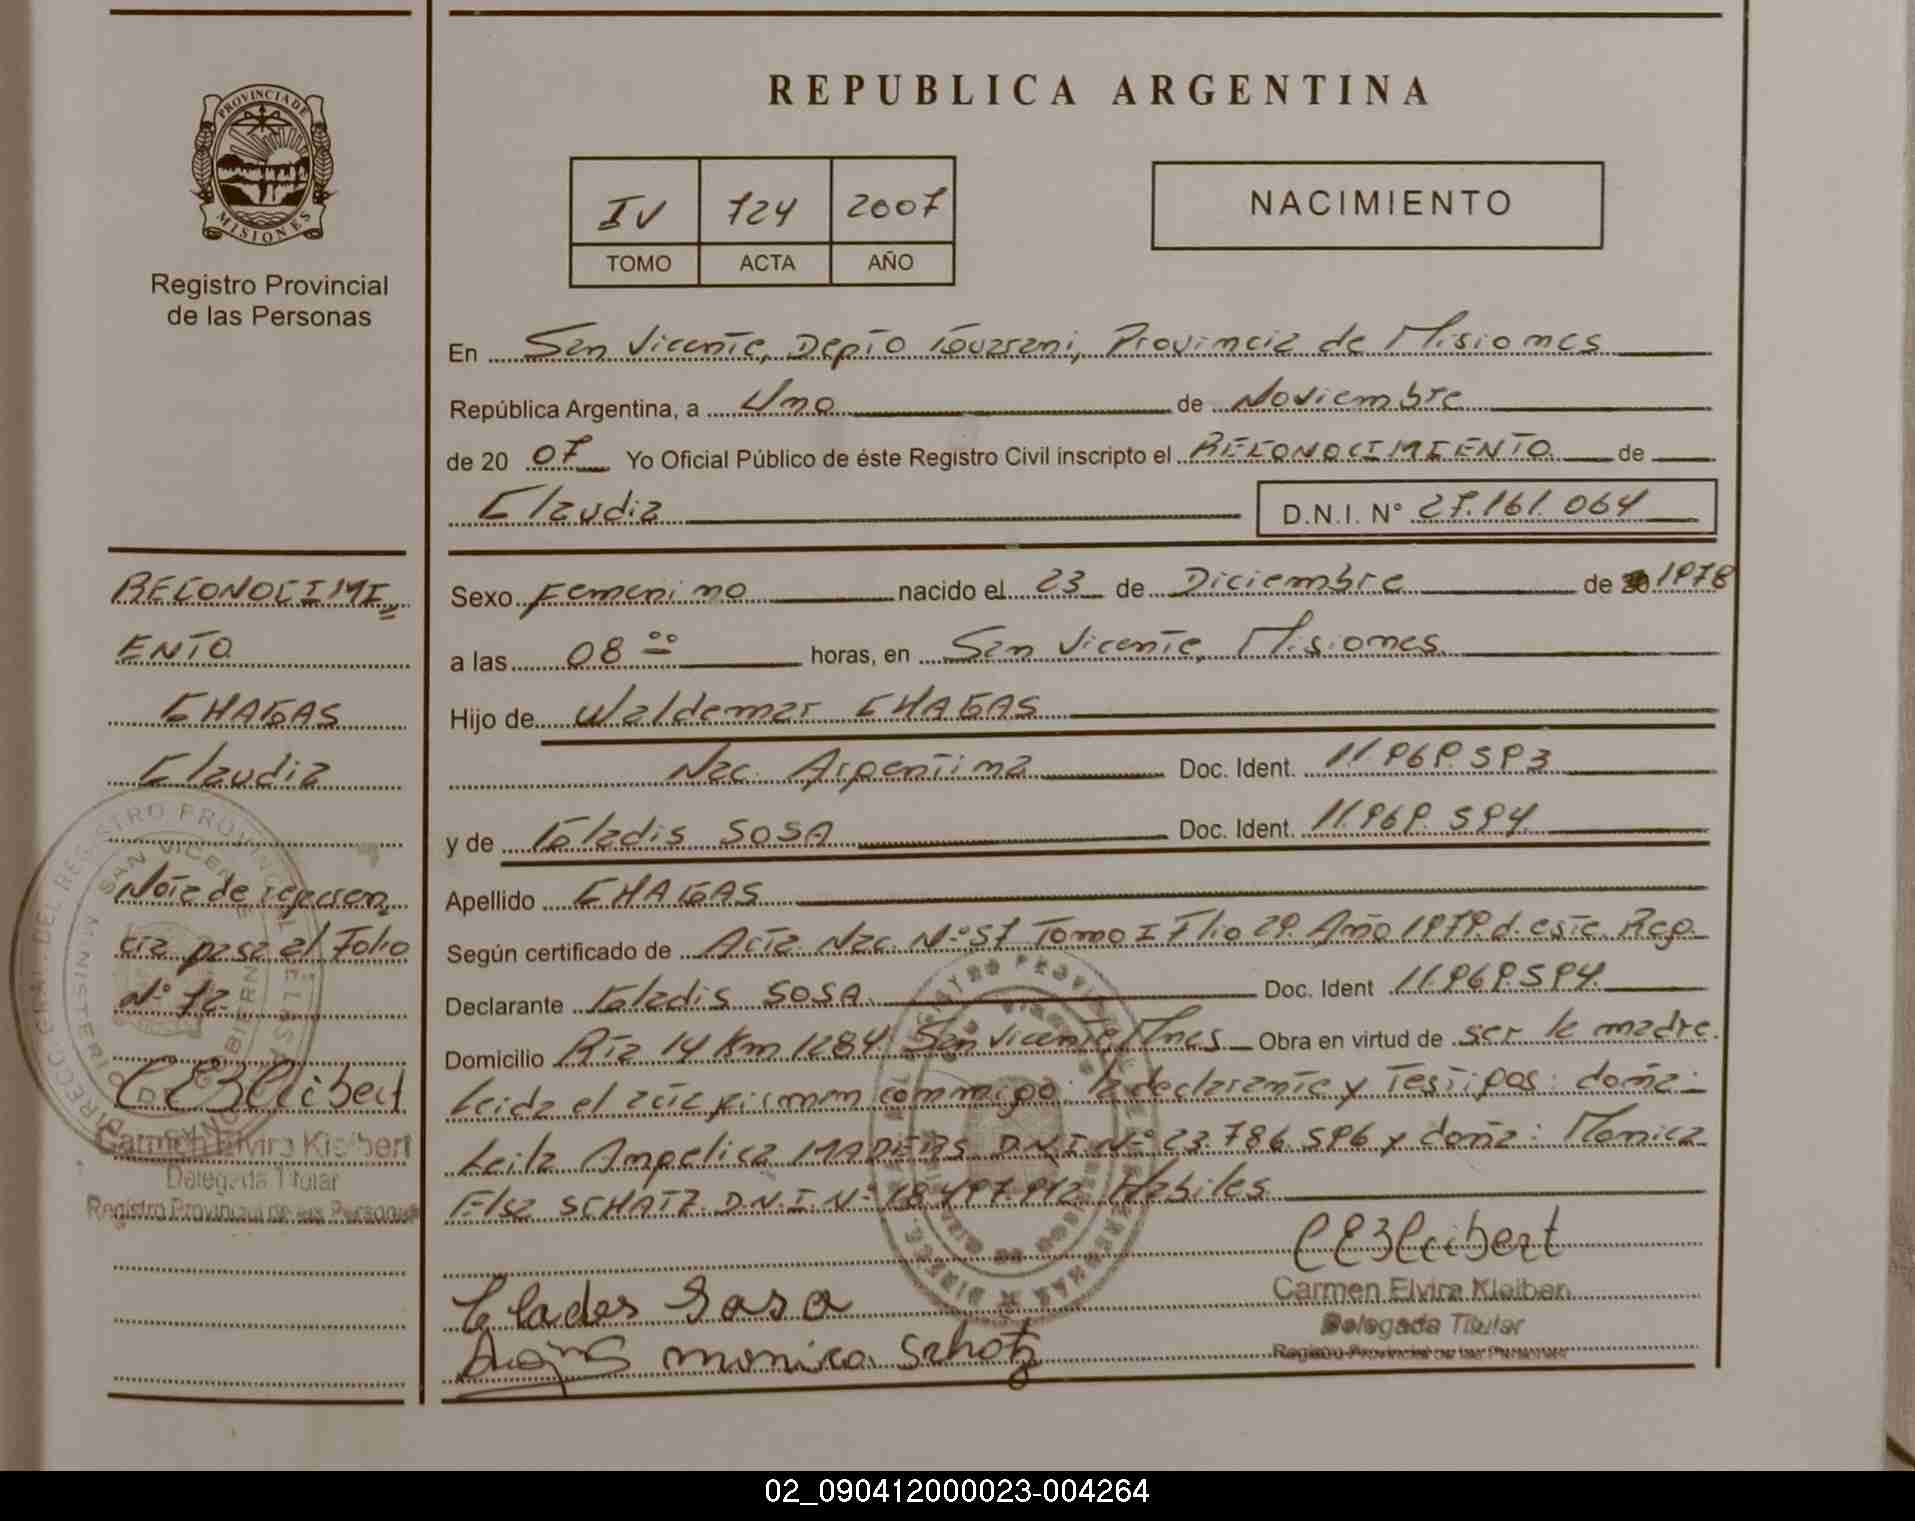 REPUBLICA ARGENTINA
PROVINCIA DE
MISIONES
Registro Provincial
de las Personas
IV 724 2007
TOMO ACTA AÑO
NACIMIENTO
En San Vicente, Depto Guarani, Provincia de Misiones
República Argentina, a Uno de Noviembre
de 20 07 Yo Oficial Público de éste Registro Civil inscripto el RECONOCIMIENTO de
Claudia D.N.I. N° 27.161.064
RECONOCIMI
ENTO
CHAGAS
Claudia
Nota de referen
cia pasa al Folio
N° 72
CEKleibert
Carmen Elvira Kleibert
Delegada Titular
Registro Provincial de las Personas
Sexo Femenino nacido el 23 de Diciembre de 1978
a las 08 00 horas, en San Vicente, Misiones
Hijo de Waldemar CHAGAS
Nac. Argentina Doc. Ident. 11.969.593
y de Gladis SOSA Doc. Ident. 11.969.594
Apellido CHAGAS
Según certificado de Acta Nac. N° 57 Tomo I Flio 29. Año 1979 d. este Reg.
Declarante Gladis SOSA Doc. Ident 11.969.594.
Domicilio Rta 14 Km 1284 San Vicente, Mnes Obra en virtud de ser la madre.
Leida el acta firman conmigo: la declarante y Testigos: doña:
Leila Angelica D.N.I. N° 23.786.596 y doña: Monica
Elsa SCHATZ D.N.I. N° 18.497.912 Habiles
CEKleibert
Carmen Elvira Kleibert
Delegada Titular
Registro Provincial de las Personas
Glades Sosa
monica Schotz
02_090412000023-004264